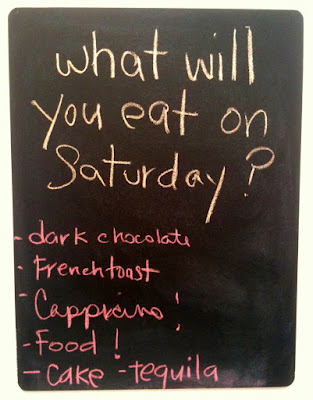 what will
you eat on
Saturday?
- dark chocolate
- Frenchtoast
- Cappicino!
- Food!
- Cake - tequila